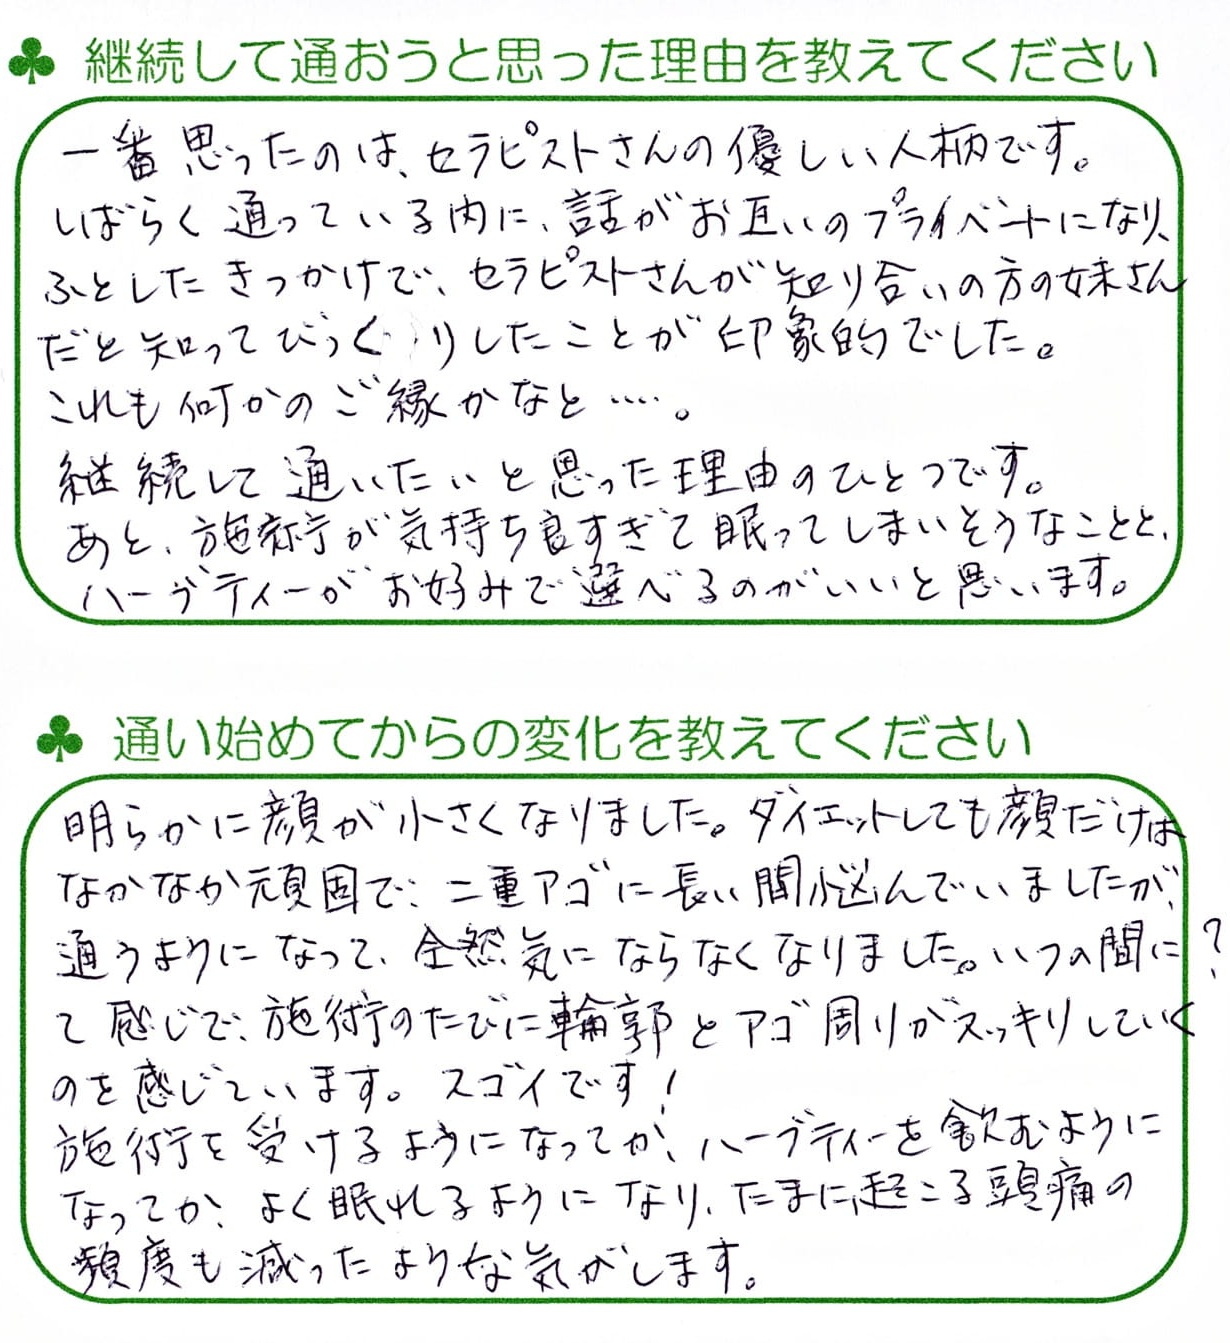 ♣ 継続して通おうと思った理由を教えてください
一番思ったのは、セラピストさんの優しい人柄です。
しばらく通っている内に、話がお互いのプライベートになり、
ふとしたきっかけで、セラピストさんが知り合いの方の妹さん
だと知ってびっくりしたことが印象的でした。
これも何かのご縁かなと‥‥。
継続して通いたいと思った理由のひとつです。
あと、施術が気持ち良すぎて眠ってしまいそうなことと、
ハーブティーがお好みで選べるのがいいと思います。
♣ 通い始めてからの変化を教えてください
明らかに顔が小さくなりました。ダイエットしても顔だけは
なかなか頑固で、二重アゴに長い間悩んでいましたが、
通うようになって、全然気にならなくなりました。いつの間に?
て感じで、施術のたびに輪郭とアゴ周りがスッキリしていく
のを感じています。スゴイです!
施術を受けるようになってか、ハーブティーを飲むように
なってか、よく眠れるようになり、たまに起こる頭痛の
頻度も減ったような気がします。